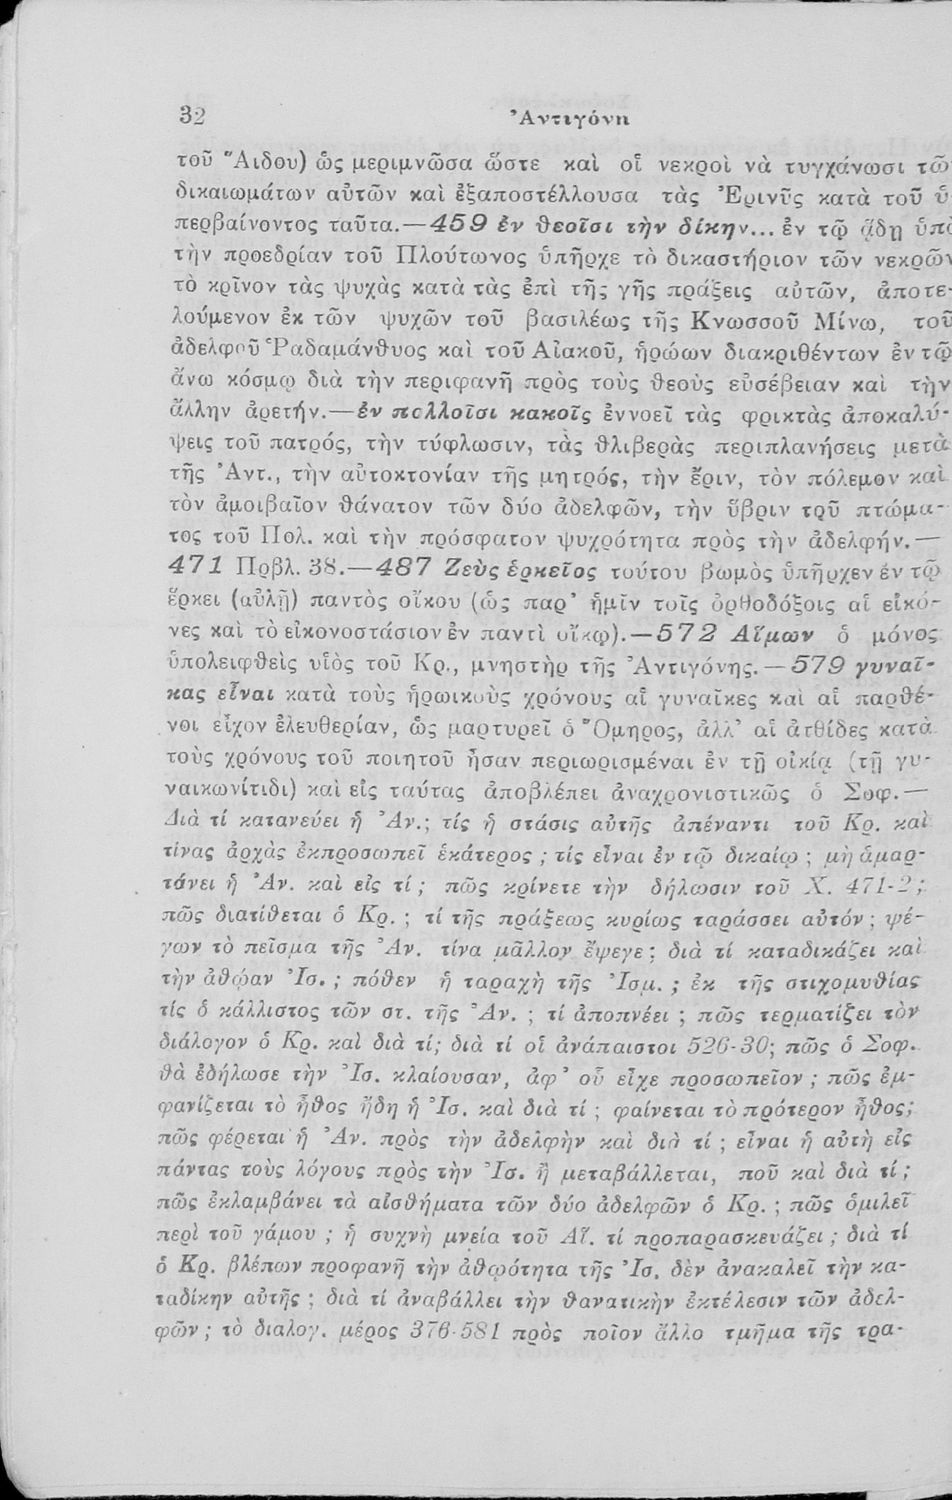 32 Ἀντιγόνη
τοῦ Ἅιδου) ὡς μεριμνῶσα ὥστε καὶ οἱ νεκροὶ νὰ τυγχάνωσι τῶν
δικαιωμάτων αὐτῶν καὶ ἐξαποστέλλουσα τὰς Ἐρινῦς κατὰ τοῦ ὑ-
περβαίνοντος ταῦτα.—459 ἐν θεοῖσι τὴν δίκην... ἐν τῷ ᾅδῃ ὑπὸ
τὴν προεδρίαν τοῦ Πλούτωνος ὑπῆρχε τὸ δικαστήριον τῶν νεκρῶν
τὸ κρῖνον τὰς ψυχὰς κατὰ τὰς ἐπὶ τῆς γῆς πράξεις αὐτῶν, ἀποτε-
λούμενον ἐκ τῶν ψυχῶν τοῦ βασιλέως τῆς Κνωσσοῦ Μίνω, τοῦ
ἀδελφοῦ Ῥαδαμάνθυος καὶ τοῦ Αἰακοῦ, ἡρώων διακριθέντων ἐν τῷ
ἄνω κόσμῳ διὰ τὴν περιφανῆ πρὸς τοὺς θεοὺς εὐσέβειαν καὶ τὴν
ἄλλην ἀρετήν.—ἐν πολλοῖσι κακοῖς ἐννοεῖ τὰς φρικτὰς ἀποκαλύ-
ψεις τοῦ πατρός, τὴν τύφλωσιν, τὰς θλιβερὰς περιπλανήσεις μετὰ
τῆς Ἀντ., τὴν αὐτοκτονίαν τῆς μητρός, τὴν ἔριν, τὸν πόλεμον καὶ
τὸν ἀμοιβαῖον θάνατον τῶν δύο ἀδελφῶν, τὴν ὕβριν τοῦ πτώμα-
τος τοῦ Πολ. καὶ τὴν πρόσφατον ψυχρότητα πρὸς τὴν ἀδελφήν.—
471 Πρβλ. 38.—487 Ζεὺς ἑρκεῖος τούτου βωμὸς ὑπῆρχεν ἐν τῷ
ἕρκει (αὐλῇ) παντὸς οἴκου (ὡς παρ' ἡμῖν τοῖς ὀρθοδόξοις αἱ εἰκό-
νες καὶ τὸ εἰκονοστάσιον ἐν παντὶ οἴκῳ).—572 Αἵμων ὁ μόνος
ὑπολειφθεὶς υἱὸς τοῦ Κρ., μνηστὴρ τῆς Ἀντιγόνης.—579 γυναῖ-
κας εἶναι κατὰ τοὺς ἡρωικοὺς χρόνους αἱ γυναῖκες καὶ αἱ παρθέ-
νοι εἶχον ἐλευθερίαν, ὡς μαρτυρεῖ ὁ Ὅμηρος, ἀλλ' αἱ ἀτθίδες κατὰ
τοὺς χρόνους τοῦ ποιητοῦ ἦσαν περιωρισμέναι ἐν τῇ οἰκίᾳ (τῇ γυ-
ναικωνίτιδι) καὶ εἰς ταύτας ἀποβλέπει ἀναχρονιστικῶς ὁ Σοφ.—
Διὰ τί κατανεύει ἡ Ἀν.; τίς ἡ στάσις αὐτῆς ἀπέναντι τοῦ Κρ. καὶ
τίνας ἀρχὰς ἐκπροσωπεῖ ἑκάτερος ; τίς εἶναι ἐν τῷ δικαίῳ ; μὴ ἁμαρ-
τάνει ἡ Ἀν. καὶ εἰς τί ; πῶς κρίνετε τὴν δήλωσιν τοῦ Χ. 471-2 ;
πῶς διατίθεται ὁ Κρ. ; τί τῆς πράξεως κυρίως ταράσσει αὐτόν ; ψέ-
γων τὸ πεῖσμα τῆς Ἀν. τίνα μᾶλλον ἔψεγε ; διὰ τί καταδικάζει καὶ
τὴν ἀθῴαν Ἰσ. ; πόθεν ἡ ταραχὴ τῆς Ἰσμ. ; ἐκ τῆς στιχομυθίας
τίς ὁ κάλλιστος τῶν στ. τῆς Ἀν. ; τί ἀποπνέει ; πῶς τερματίζει τὸν
διάλογον ὁ Κρ. καὶ διὰ τί; διὰ τί οἱ ἀνάπαιστοι 526-30; πῶς ὁ Σοφ.
θὰ ἐδήλωσε τὴν Ἰσ. κλαίουσαν, ἀφ' οὗ εἶχε προσωπεῖον ; πῶς ἐμ-
φανίζεται τὸ ἦθος ἤδη ἡ Ἰσ. καὶ διὰ τί ; φαίνεται τὸ πρότερον ἦθος;
πῶς φέρεται ἡ Ἀν. πρὸς τὴν ἀδελφὴν καὶ διὰ τί ; εἶναι ἡ αὐτὴ εἰς
πάντας τοὺς λόγους πρὸς τὴν Ἰσ. ἢ μεταβάλλεται, ποῦ καὶ διὰ τί ;
πῶς ἐκλαμβάνει τὰ αἰσθήματα τῶν δύο ἀδελφῶν ὁ Κρ. ; πῶς ὁμιλεῖ
περὶ τοῦ γάμου ; ἡ συχνὴ μνεία τοῦ Αἵ. τί προπαρασκευάζει ; διὰ τί
ὁ Κρ. βλέπων προφανῆ τὴν ἀθῳότητα τῆς Ἰσ. δὲν ἀνακαλεῖ τὴν κα-
ταδίκην αὐτῆς ; διὰ τί ἀναβάλλει τὴν θανατικὴν ἐκτέλεσιν τῶν ἀδελ-
φῶν ; τὸ διαλογ. μέρος 376-581 πρὸς ποῖον ἄλλο τμῆμα τῆς τρα-